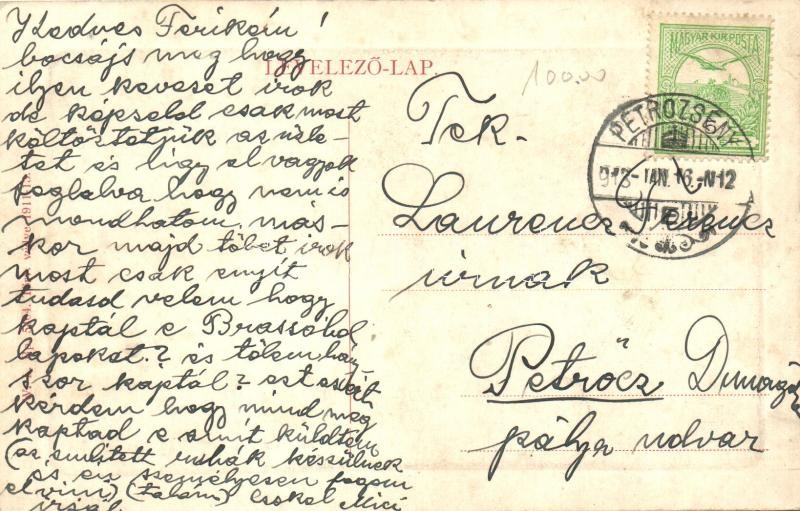 Kedves Ferikém!
bocsájs meg hogy
ilyen keveset irok
de képseld csak most
költöztetjük az üzle-
tet és úgy el vagyok
foglalva hogy nem is
mondhatom más-
kor majd töbet irok
most csak enyit
tudasd velem hogy
kaptál e Brassóból
lapokat? és tőlem hány-
szor kaptál? ezt azért
kérdem hogy mind meg
kaptad e amit küldtem
(az emlitett ruhák készülnek
és én személyesen fogom
elvinni) (talán) Csokol Mici
LEVELEZŐ-LAP.
100.00
MAGYAR KIR. POSTA
PETROZSÉNY
913 JAN. 16 N12
Tek.
Laurencz Ferencz
úrnak
Petrőcz
pálya udvar